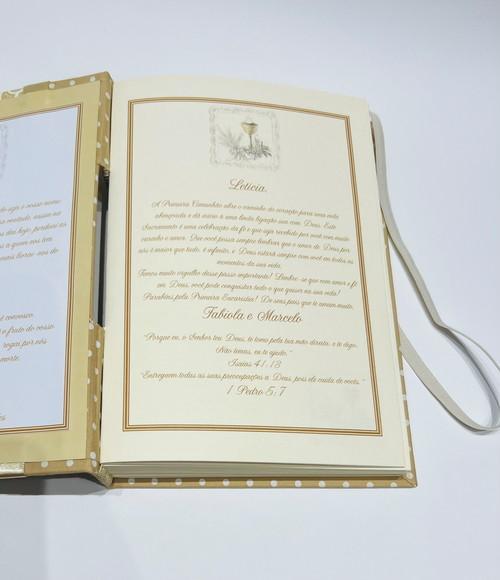 seja o vosso nome
vontade, assim na
dia hoje, perdoai as
a quem nos tem
mas livrai-nos do
é convosco,
o fruto do vosso
rogai por nós
morte.
Letícia,
A Primeira Comunhão abre o caminho do coração para uma vida
abençoada e dá início à uma linda ligação sua com Deus. Este
Sacramento é uma celebração da fé e que seja recebido por você com muito
carinho e amor. Que você possa sempre lembrar que o amor de Deus por
nós é maior que tudo, é infinito, e Deus estará sempre com você em todos os
momentos da sua vida.
Temos muito orgulho desse passo importante! Lembre-se que com amor e fé
em Deus, você pode conquistar tudo o que quiser na sua vida!
Parabéns pela Primeira Eucaristia! De seus pais que te amam muito,
Fabíola e Marcelo
"Porque eu, o Senhor teu Deus, te tomo pela tua mão direita; e te digo:
Não temas, eu te ajudo."
Isaías 41:13
"Entreguem todas as suas preocupações a Deus, pois ele cuida de vocês."
1 Pedro 5:7